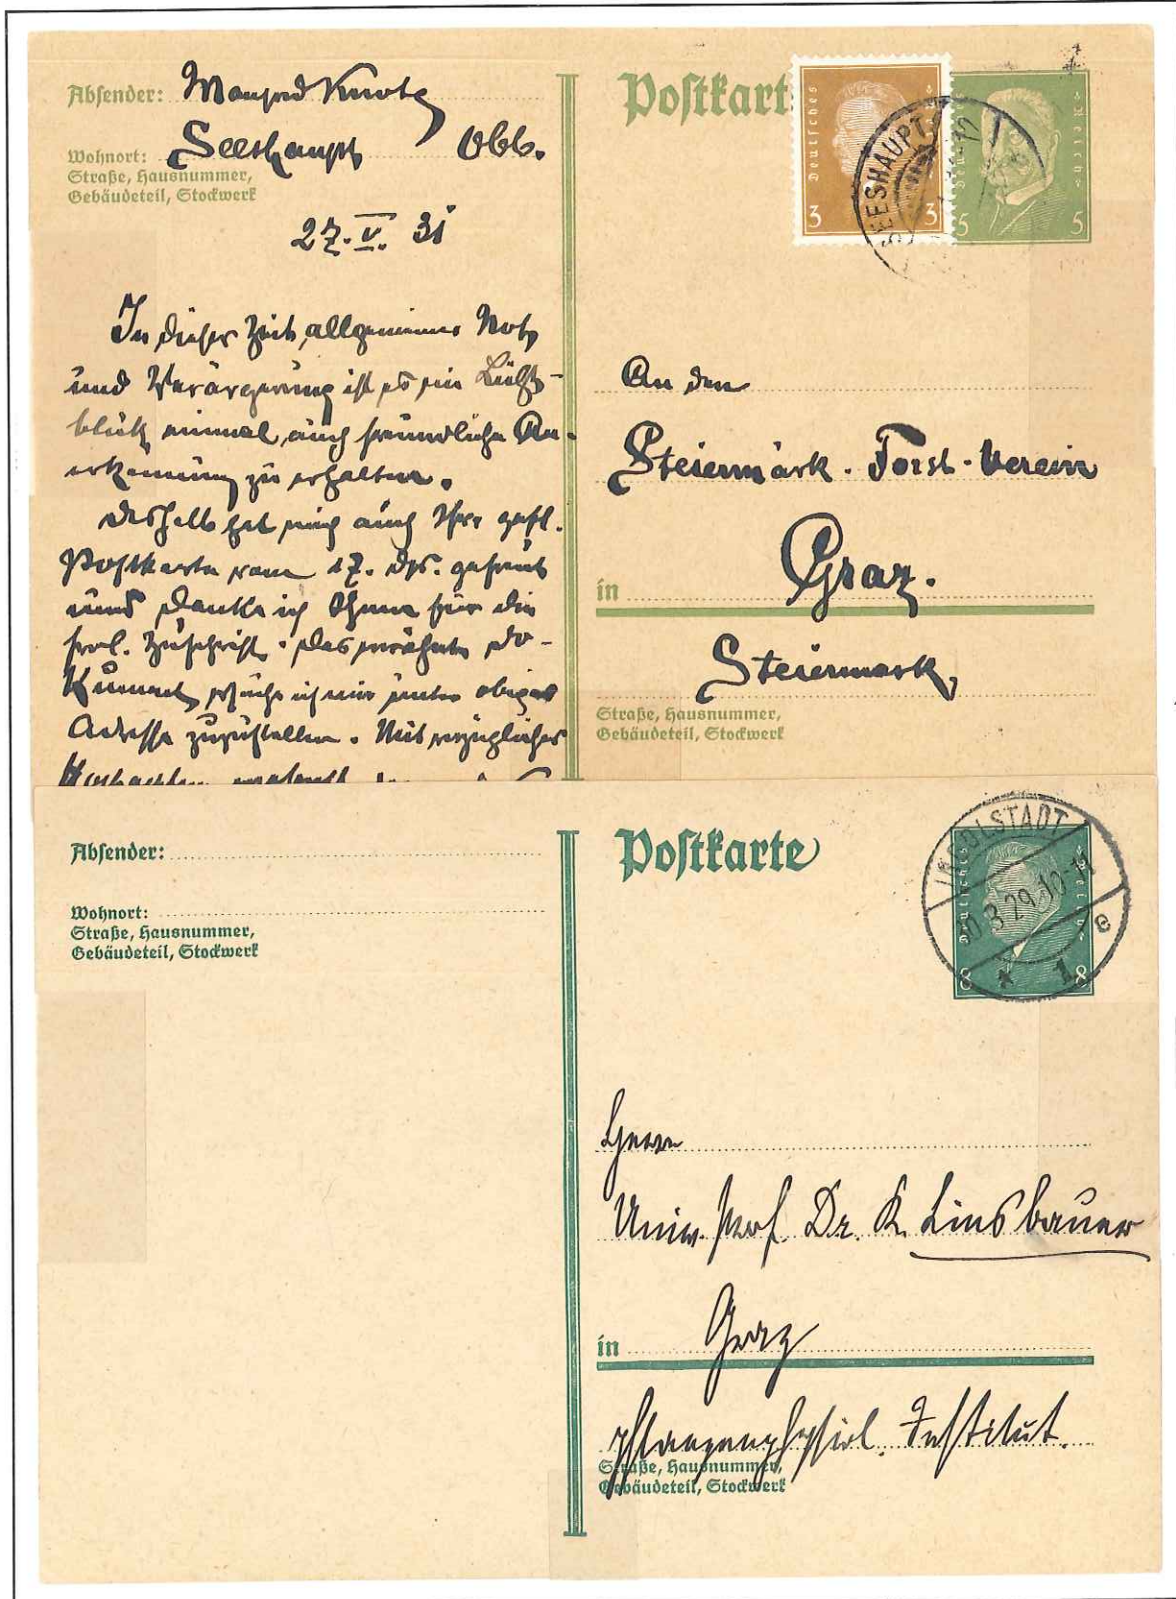 Absender: Manfred Knote
Seeshaupt Obb.
Wohnort:
Straße, Hausnummer,
Gebäudeteil, Stockwerk
27. V. 31
In dieser Zeit allgemeiner Not
und Verärgerung ist es ein Licht-
blick einmal auch freundliche An-
erkennung zu erhalten.
Deshalb hat mich auch Ihre gefl.
Postkarte vom 17. ds. gefreut
und danke ich Ihnen für die
frdl. Zuschrift. Das erwähnte Do-
kument ich mir unter obiger
Adresse zuzustellen. Mit vorzüglicher
Postkart
Deutsches Reich
3 3
5 5
SEESHAUPT
An den
Steiermärk. Forst-Verein
in Graz.
Steiermark
Straße, Hausnummer,
Gebäudeteil, Stockwerk
Absender:
Wohnort:
Straße, Hausnummer,
Gebäudeteil, Stockwerk
Postkarte
Deutsches Reich
8 8
INGOLSTADT
10.3.29.10-11
* 1 e
Herrn
Univ. Prof. Dr. K. Linsbauer
in Graz
Pflanzenphysiol. Institut.
Straße, Hausnummer,
Gebäudeteil, Stockwerk